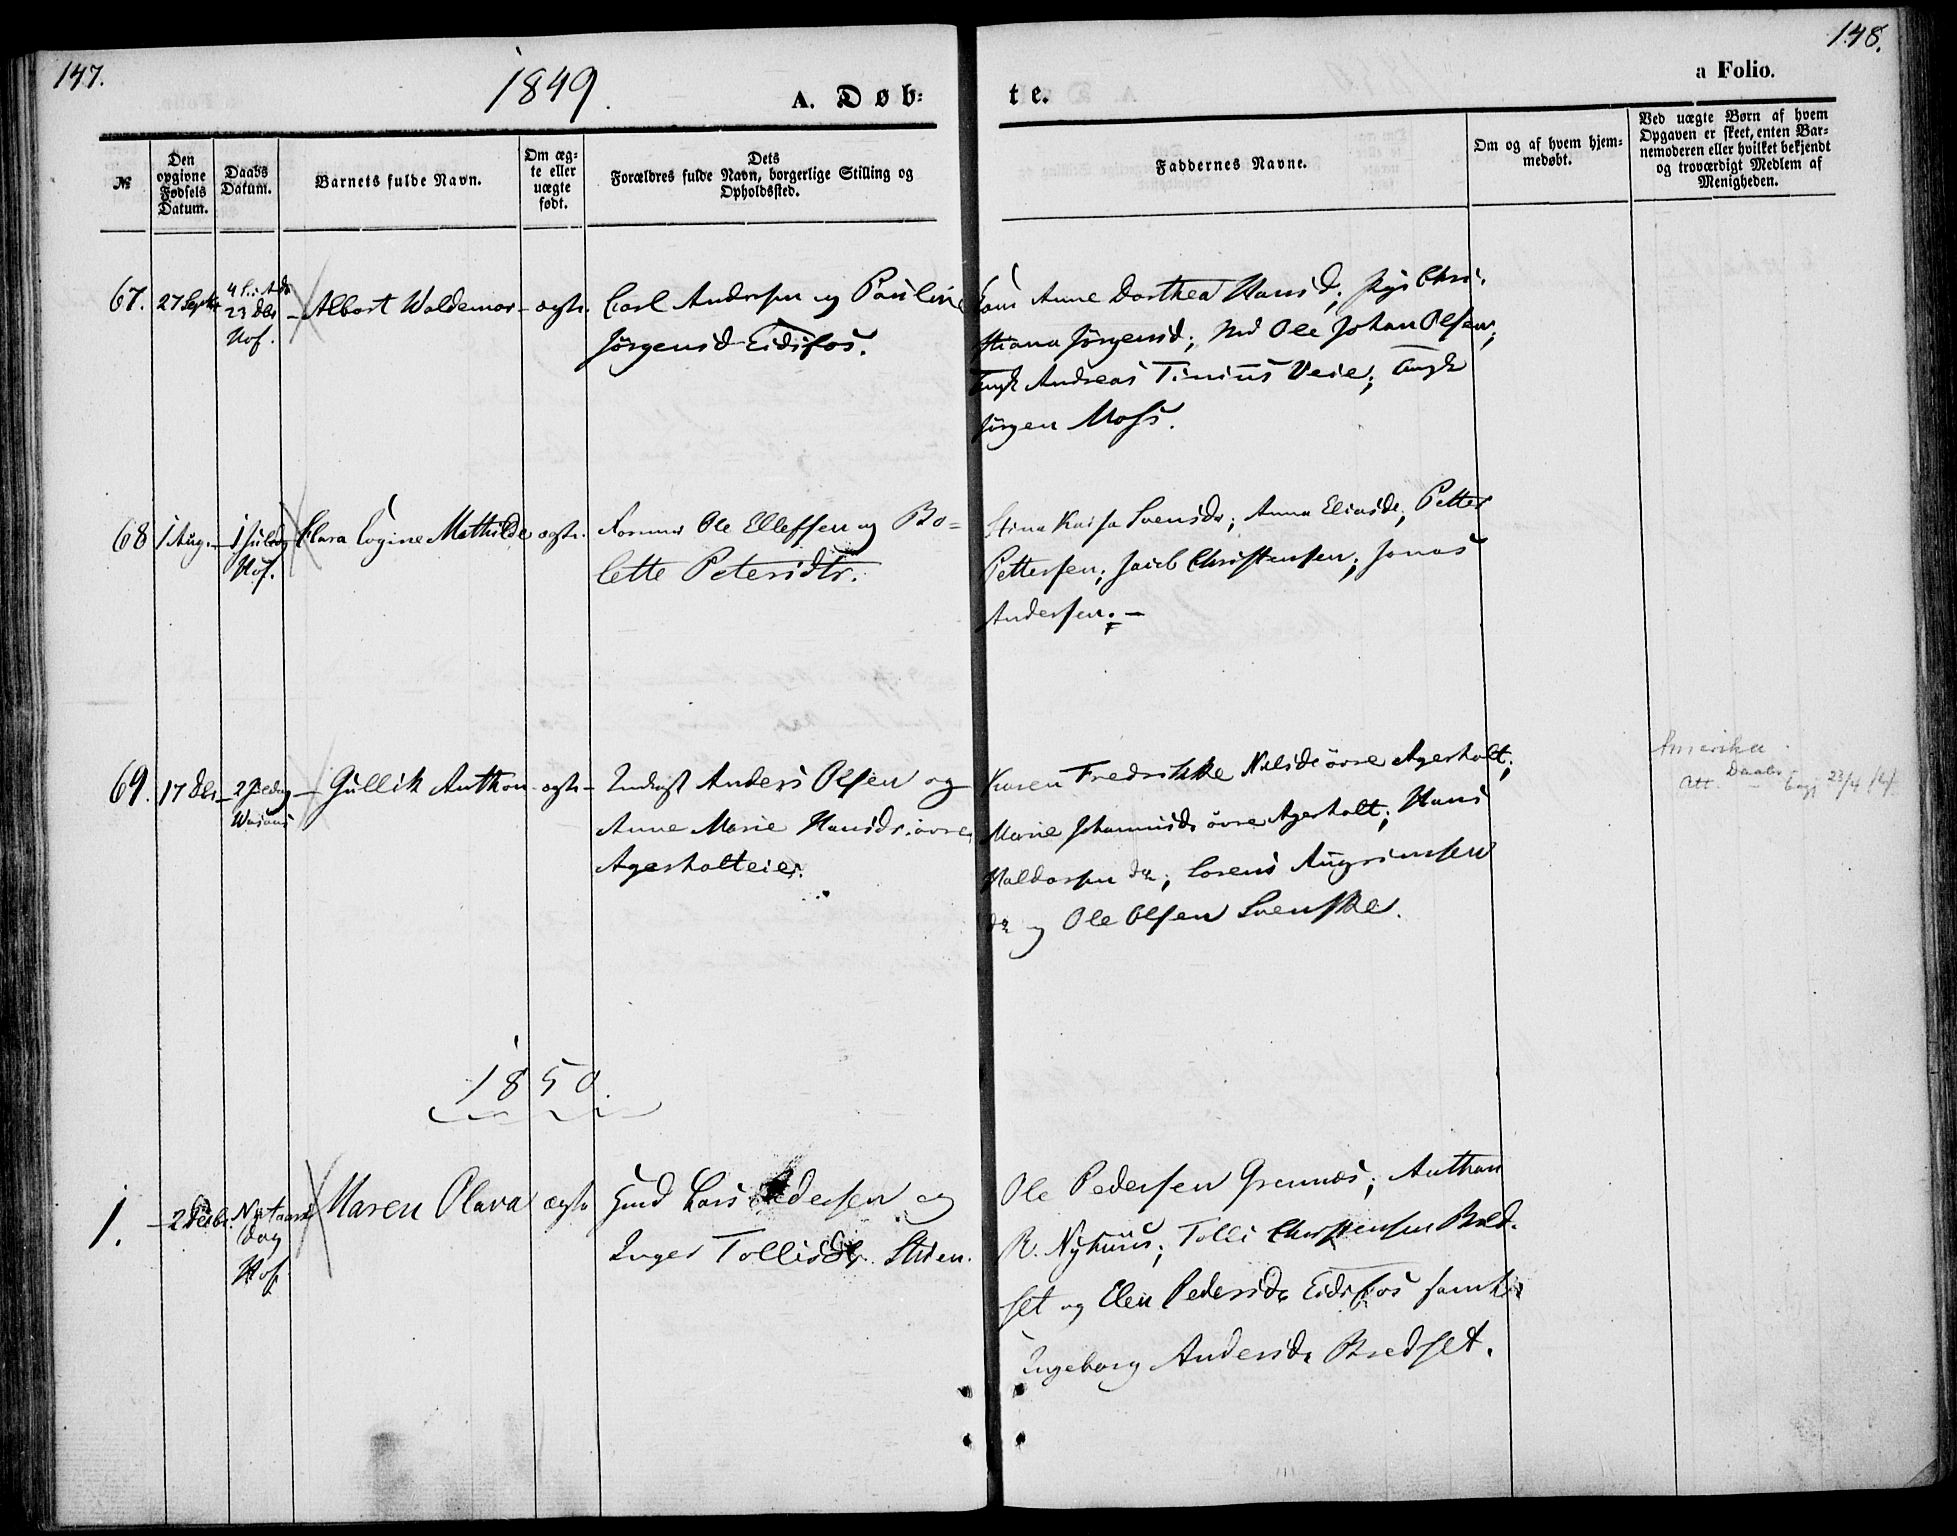 147.
148.
1849.
A. Døb=
te.
a Folio.
№
Den
opgivne
Fødsels
Datum.
Daabs
Datum.
Barnets fulde Navn.
Om æg-
te eller
uægte
født.
Dets
Forældres fulde Navn, borgerlige Stilling og
Opholdssted.
Faddernes Navne.
Om og af hvem hjem=
medøbt.
Ved uægte Børn af hvem
Opgaven er skeet, enten Bar=
nemoderen eller hvilket bekjendt
og troværdigt Medlem af
Menigheden.
67.
27 Septr
23 Dbr
Hof.
Albert Waldemar
ægte.
Carl Andersen og Pauline
Jørgensd Eidsfos.
Anne Dorthea Hansd; Pige Chri-
stiana Jørgensd; Ole Johan Olsen;
Ungk Andreas Tinius Veie; Ungk
Jørgen Moss.
68
1 Aug.
1 Juledag
Hof.
Clara Mathilde
ægte.
Ole Ellefsen og Bo=
lette Petersdtr.
Stina Kaisa Svensdr; Anna Eliasdr, Petter
Pettersen; Jacob Christensen; Jonas
Andersen. —
69.
17 Dbr
2 Juledag
Gullik Anthon
ægte
Indergst Anders Olsen og
Anne Marie Hansdr øvre
Agerholteier.
Karen Fredrikke Nilsdr øvre Agerholt;
Marie Johannisdr øvre Agerholt; Hans
Haldorsen do; Lorens
do og Ole Olsen Svenske.
Amerika.
Att.
Daabs
23/4
1850.
1.
Nytaars
dag
Hof
Maren Olava
ægte
Lars Pedersen og
Inger Tollisdr. Stuen.
Ole Pedersen Grennes; Anthon
R. Nyhuus; Tolli Christensen Bred-
set og Elen Pedersdr Eidsfos samt
Ingeborg Andersdr Bredset.